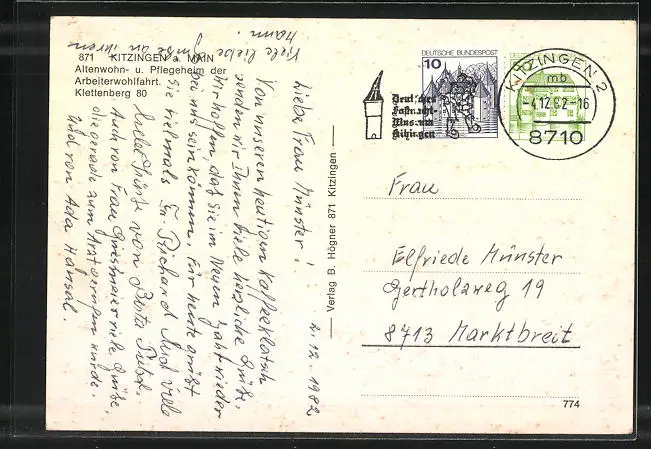 871 KITZINGEN a. MAIN
Altenwohn- u. Pflegeheim der
Arbeiterwohlfahrt.
Klettenberg 80
2.12.1982
Liebe Frau Münster!
Von unseren heutigen Kaffeeklatsch
senden wir Ihnen viele herzliche Grüße.
Wir hoffen, daß sie im Neuen Jahr wieder
bei uns sein können. Für heute grüßt
sie vielmals Richard. Und viele
Grüße von
Auch von Frau viele Grüße,
die gerade zum Arzt gerufen wurde.
Und von Ada Hansal.
Viele liebe Grüße an ihren
Mann.
Verlag B. Högner 871 Kitzingen
DEUTSCHE BUNDESPOST
10
Deutsches
Fastnacht-
Museum
Kitzingen
KITZINGEN 2
mb
-4.12.82-16
8710
Frau
Elfriede Münster
Gertholzweg 19
8713 Marktbreit
774